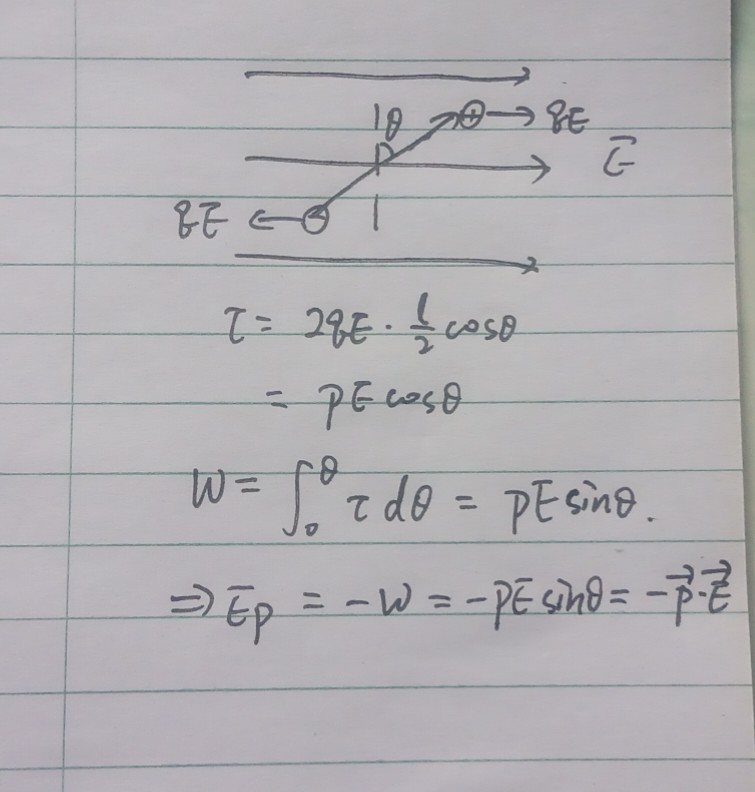 θ ⊕ → qE
E
qE ← ⊖
τ = 2qE · l/2 cosθ
= pE cosθ
W = ∫₀^θ τ dθ = pE sinθ.
⇒ Ep = -W = -pE sinθ = -p⃗·E⃗